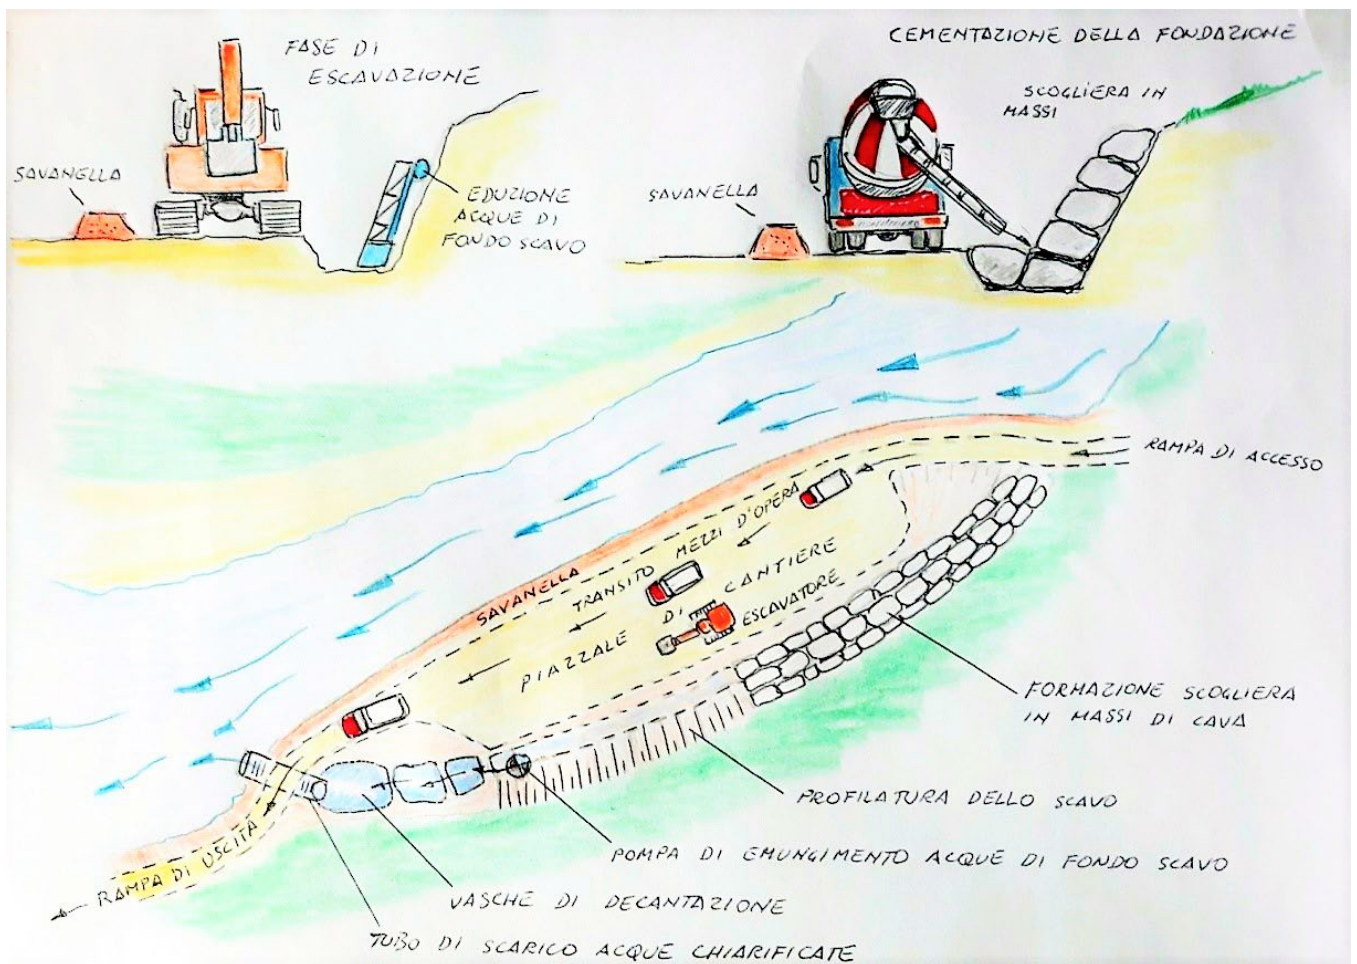 FASE DI
ESCAVAZIONE
SAVANELLA
EDUZIONE
ACQUE DI
FONDO SCAVO
CEMENTAZIONE DELLA FONDAZIONE
SCOGLIERA IN
MASSI
SAVANELLA
RAMPA DI ACCESSO
SAVANELLA
TRANSITO MEZZI D'OPERA
PIAZZALE DI CANTIERE
ESCAVATORE
FORMAZIONE SCOGLIERA
IN MASSI DI CAVA
PROFILATURA DELLO SCAVO
POMPA DI EMUNGIMENTO ACQUE DI FONDO SCAVO
RAMPA DI USCITA
VASCHE DI DECANTAZIONE
TUBO DI SCARICO ACQUE CHIARIFICATE